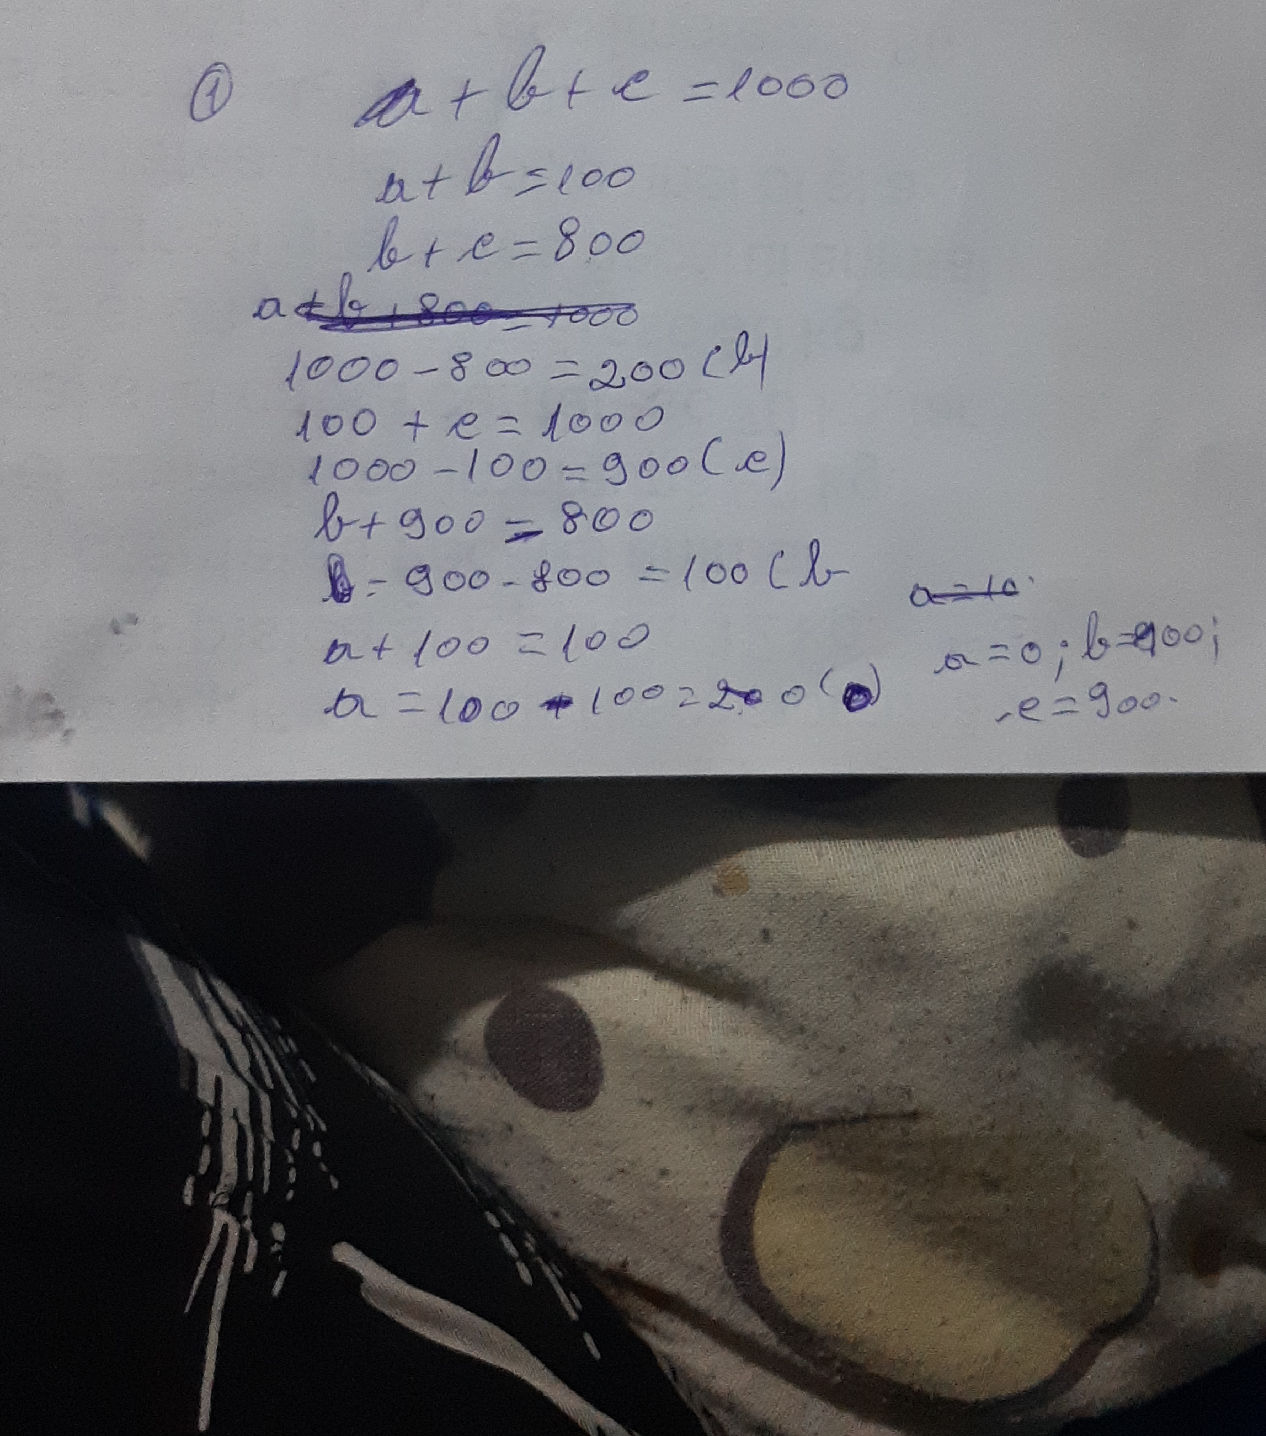 1 a + b + c = 1000
a + b = 100
b + c = 800
a + b + 800 = 1000
1000 - 800 = 200 (b)
100 + c = 1000
1000 - 100 = 900 (c)
b + 900 = 800
b = 900 - 800 = 100 (b
a + 100 = 100
a = 100 - 100 = 200 (0)
a = 10
a = 0; b = 900;
c = 900.